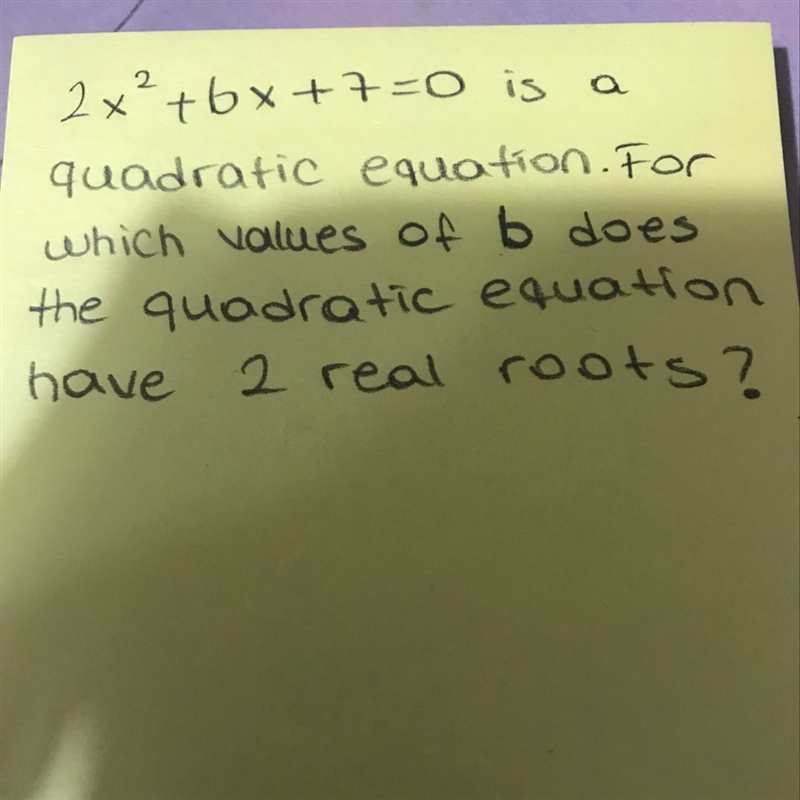 2x²+bx+7=0 is a
quadratic equation. For
which values of b does
the quadratic equation
have 2 real roots?